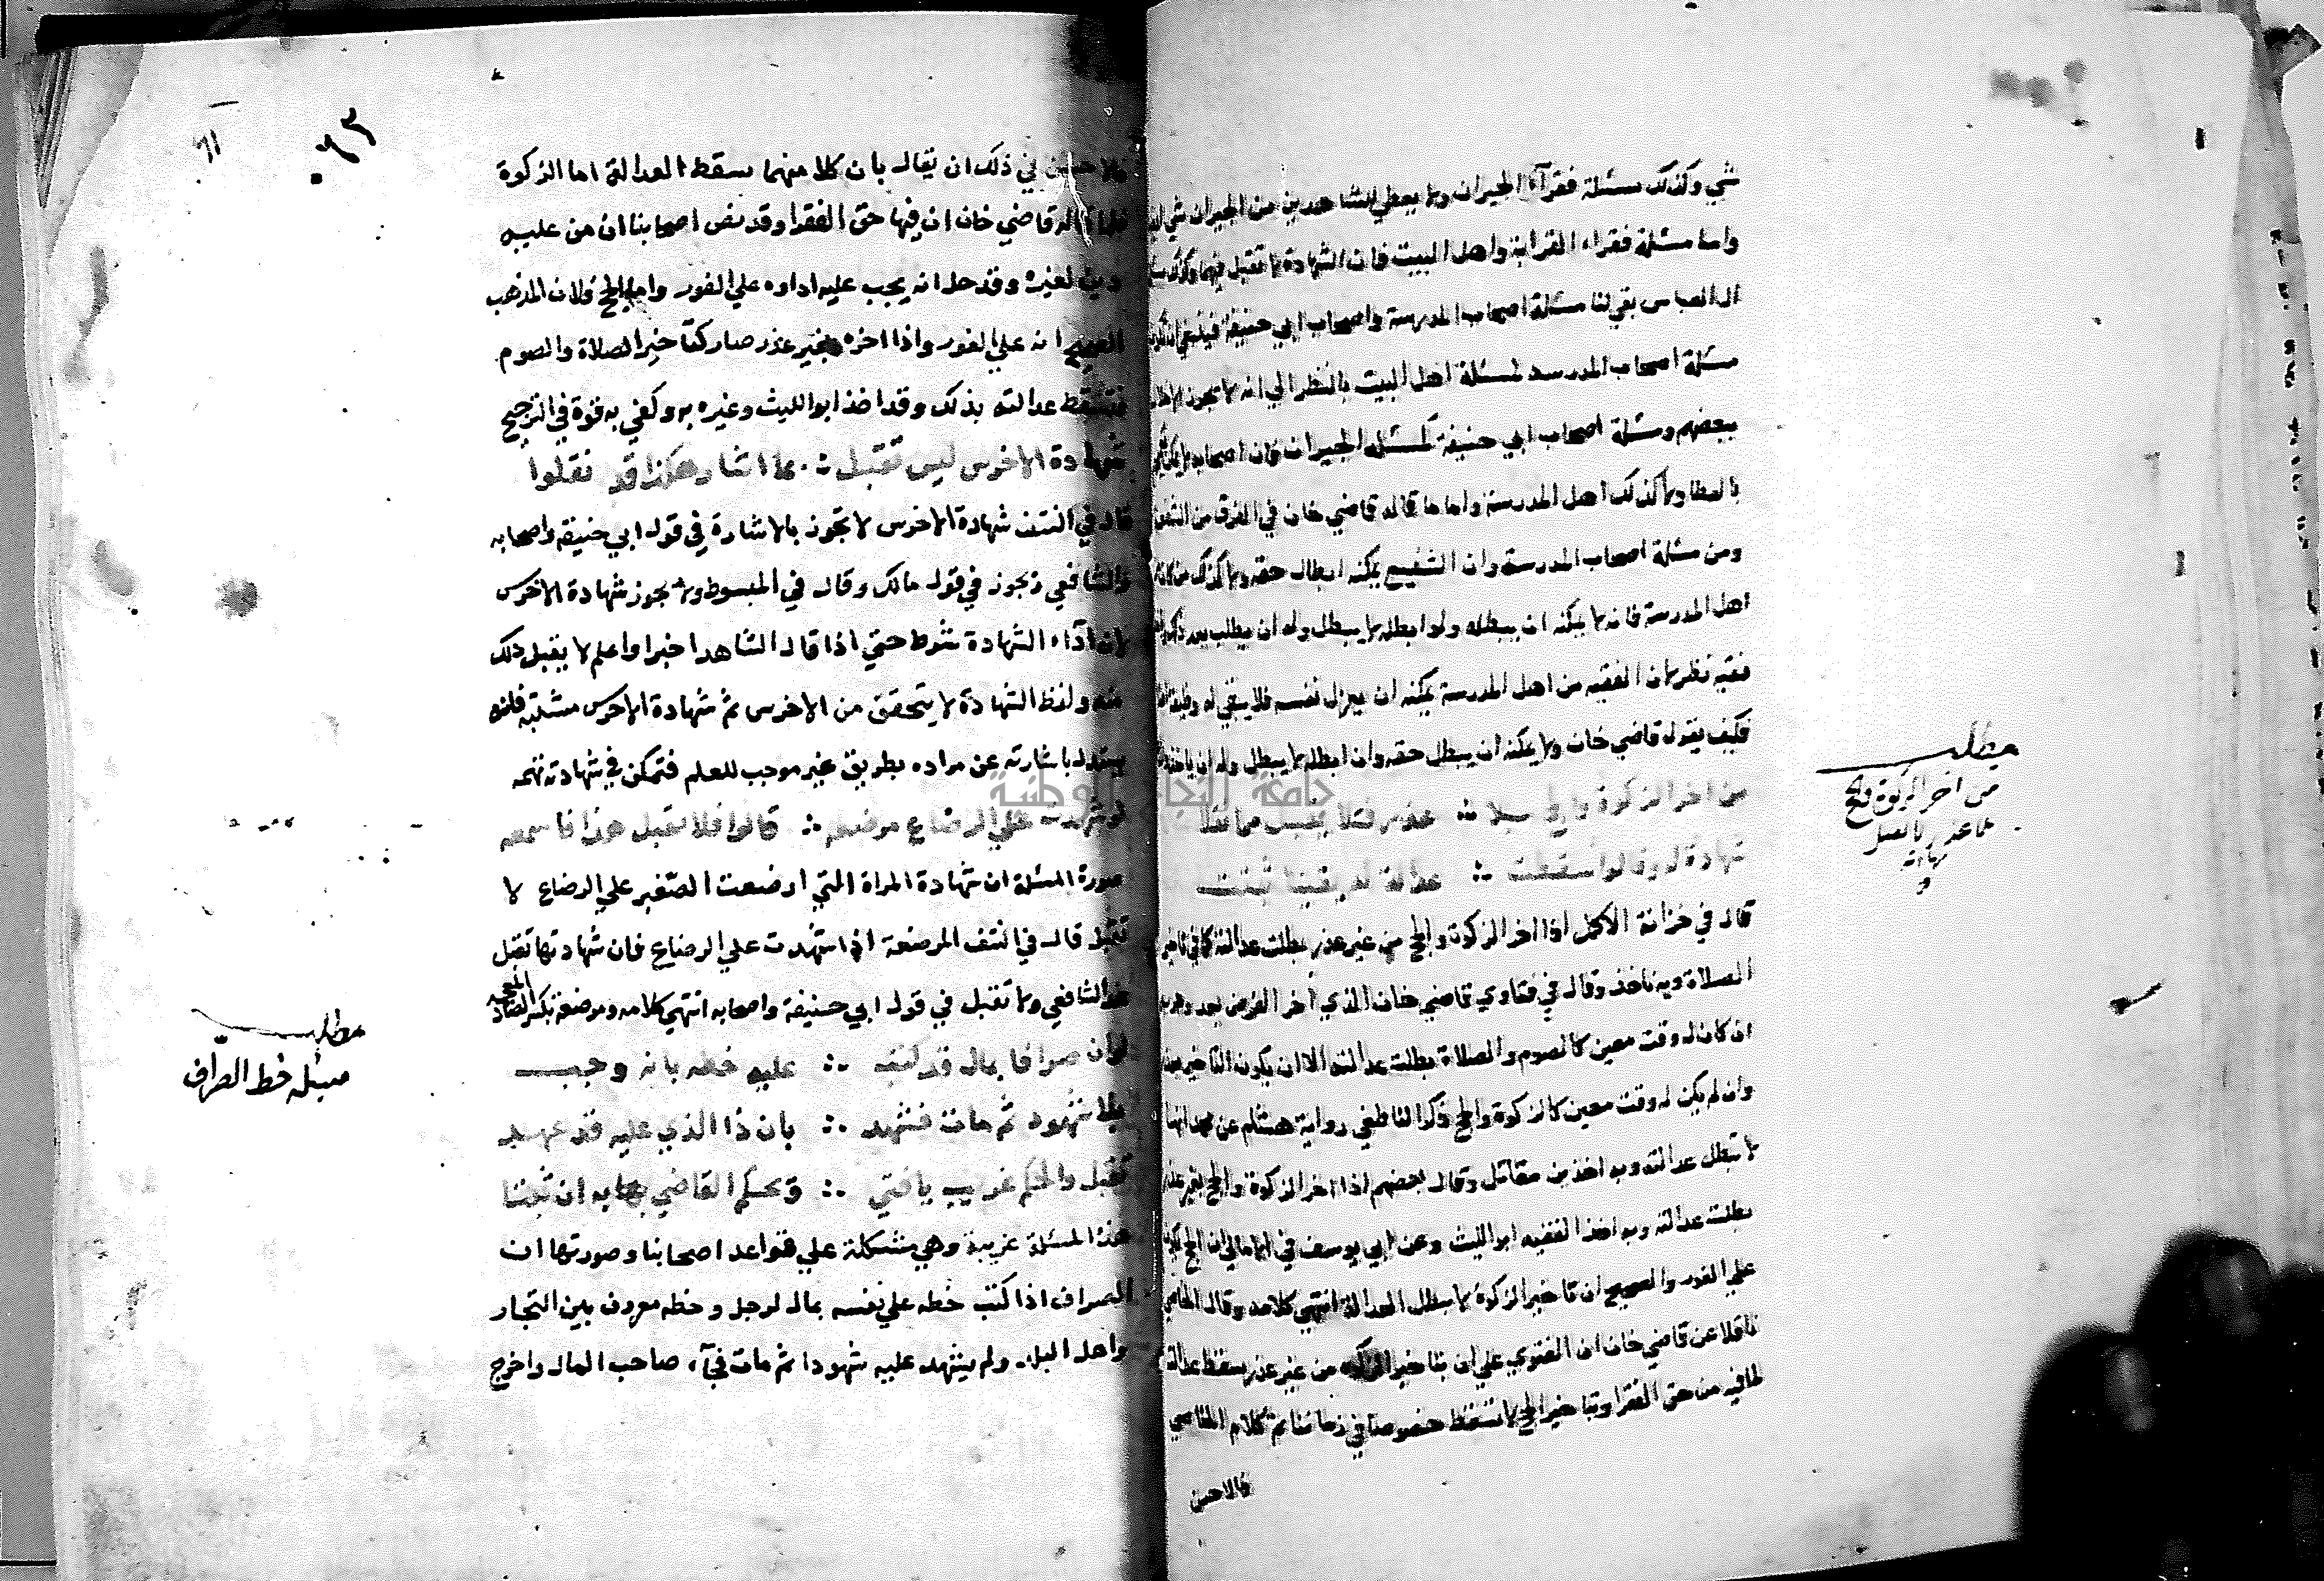 شي وكذلك مسئلة فقرآء الجيران ولا يعطي للشاهدين من الجيران شي
واما مسئلة فقراء القرابة واهل البيت فان الشهادة لا تقبل فيهما وكذلك
ال العباس بقي لنا مسئلة اصحاب المدرسة واصحاب ابي حنيفة فينبغي ان تكون
مسئلة اصحاب المدرسه لمسئلة اهل البيت بالنظر الي انه لا تجوز
ببعضهم ومسئلة اصحاب ابي حنيفة كمسئلة الجيران فان اصحابه
بالعطا ولا كذلك اهل المدرسة واما ما قاله قاضي خان في الفرق من الشفيع
ومن مسئلة اصحاب المدرسة وان الشفيع يمكنه ابطال حقه ولا كذلك من كان
اهل المدرسة فانه لا يمكنه ان يبطله ولو ابطله لا يبطل وله ان يطلب بعد ذلك
ففيه نظر لان الفقيه من اهل المدرسة يمكنه ان يعزل نفسه فلا يبقي له وظيفة
فكيف يقول قاضي خان ولا يمكنه ان يبطل حقه وان ابطله لا يبطل وله ان ياخذ
من اخر الزكوة عذر فلا يقبل
شهادة له وقالوا سقطت ∴ عدالة له يقينا ثبتت
قال في خزانة الاكمل اذا اخر الزكوة والحج من غير عذر بطلت عدالته كما في تاخير
الصلاة وبه ناخذ وقال في فتاوي قاضي خان الذي اخر الفرض بعد وجوبه
ان كان له وقت معين كالصوم والصلاة بطلت عدالته الا ان يكون التاخير
وان لم يكن له وقت معين كالزكوة والحج ذكر الناطفي رواية هشام عن محمد انها
لا تبطل عدالته وبه اخذ بن مقاتل وقال بعضهم اذا اخر الزكوة والحج بغير عذر
بطلت عدالته وبه اخذ الفقيه ابو الليث وعن ابي يوسف في الامالي ان الحج
علي الفور والصحيح ان تاخير الزكوة لا يبطل العدالة انتهي كلامه وقال
ناقلا عن قاضي خان ان الفتوي علي ان بتاخير الزكوة من غير عذر يسقط عدالته
لما فيه من حق الفقرا وبتاخير الحج لا تسقط خصوصا في زماننا تم كلام
فالاحسن
مطلب
من اخر الزكوة والحج
بلا عذر لا تقبل
شهادته
٦٣
٦١
فالاحسن في ذلك ان يقال بان كلا منهما يسقط العدالة اما الزكوة
فلما قاله قاضي خان ان فيها حق الفقرا وقد نص اصحابنا ان من عليه
دين لغيره وقد حل انه يجب عليه اداوه علي الفور واما الحج فلان المذهب
الصحيح انه علي الفور واذا اخره بغير عذر صار كتاخير الصلاة والصوم
فتسقط عدالته بذلك وقد اخذ ابو الليث وغيره به وكفي به قوة في الترجيح
شهادة الاخرس ليس تقبل ∴ بما اشار هكذا قد نقلوا
قال في النتف شهادة الاخرس لا تجوز بالاشارة في قول ابي حنيفه واصحابه
والشافعي وتجوز في قول مالك وقال في المبسوط ولا تجوز شهادة الاخرس
لان اداء الشهادة شرط حتي اذا قال الشاهد اخبر او اعلم لا يقبل ذلك
منه ولفظ الشهادة لا يتحقق من الاخرس ثم شهادة الاخرس مشتبه فانه
يستدل باشارته عن مراده بطريق غير موجب للعلم فتمكن في شهادته تهمه
لو شهدت علي الرضاع مرضعه ∴ قالوا فلا تقبل هذا فاسمعه
صورة المسئلة ان شهادة المراة التي ارضعت الصغير علي الرضاع لا
تقبل قال في النتف المرضعة اذا شهدت علي الرضاع فان شهادتها تقبل
عند الشافعي ولا تقبل في قول ابي حنيفة واصحابه انتهي كلامه ومرضعة بكسر الضاد
المعجمه
لو ان صرافا بمال قد كتب ∴ عليه خطه بانه وجب
بلا شهود ثم مات فشهد ∴ بان ذا الذي عليه قد عهد
تقبل والحكم غريب يا فتي ∴ ويحكم القاضي به ان ثبتا
هذه المسئلة غريبة وهي مشكلة علي قواعد اصحابنا وصورتها ان
الصراف اذا كتب خطه علي نفسه بمال لرجل وخطه معروف بين التجار
واهل البلد ولم يشهد عليه شهودا ثم مات فجآء صاحب المال واخرج
مطلب
مسئلة خط الصراف
جامعة النجاح الوطنية